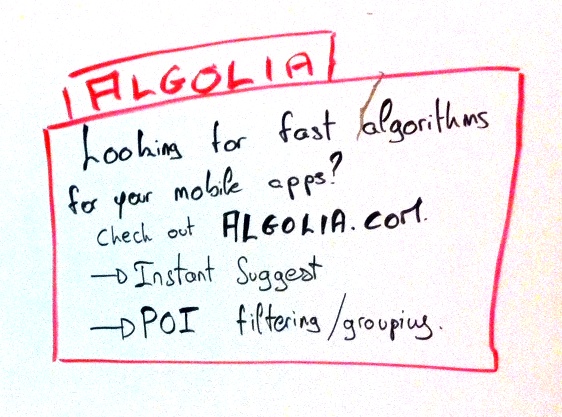 ALGOLIA
Looking for fast algorithms
for your mobile apps?
Check out ALGOLIA.com.
→ Instant Suggest
→ POI filtering/grouping.